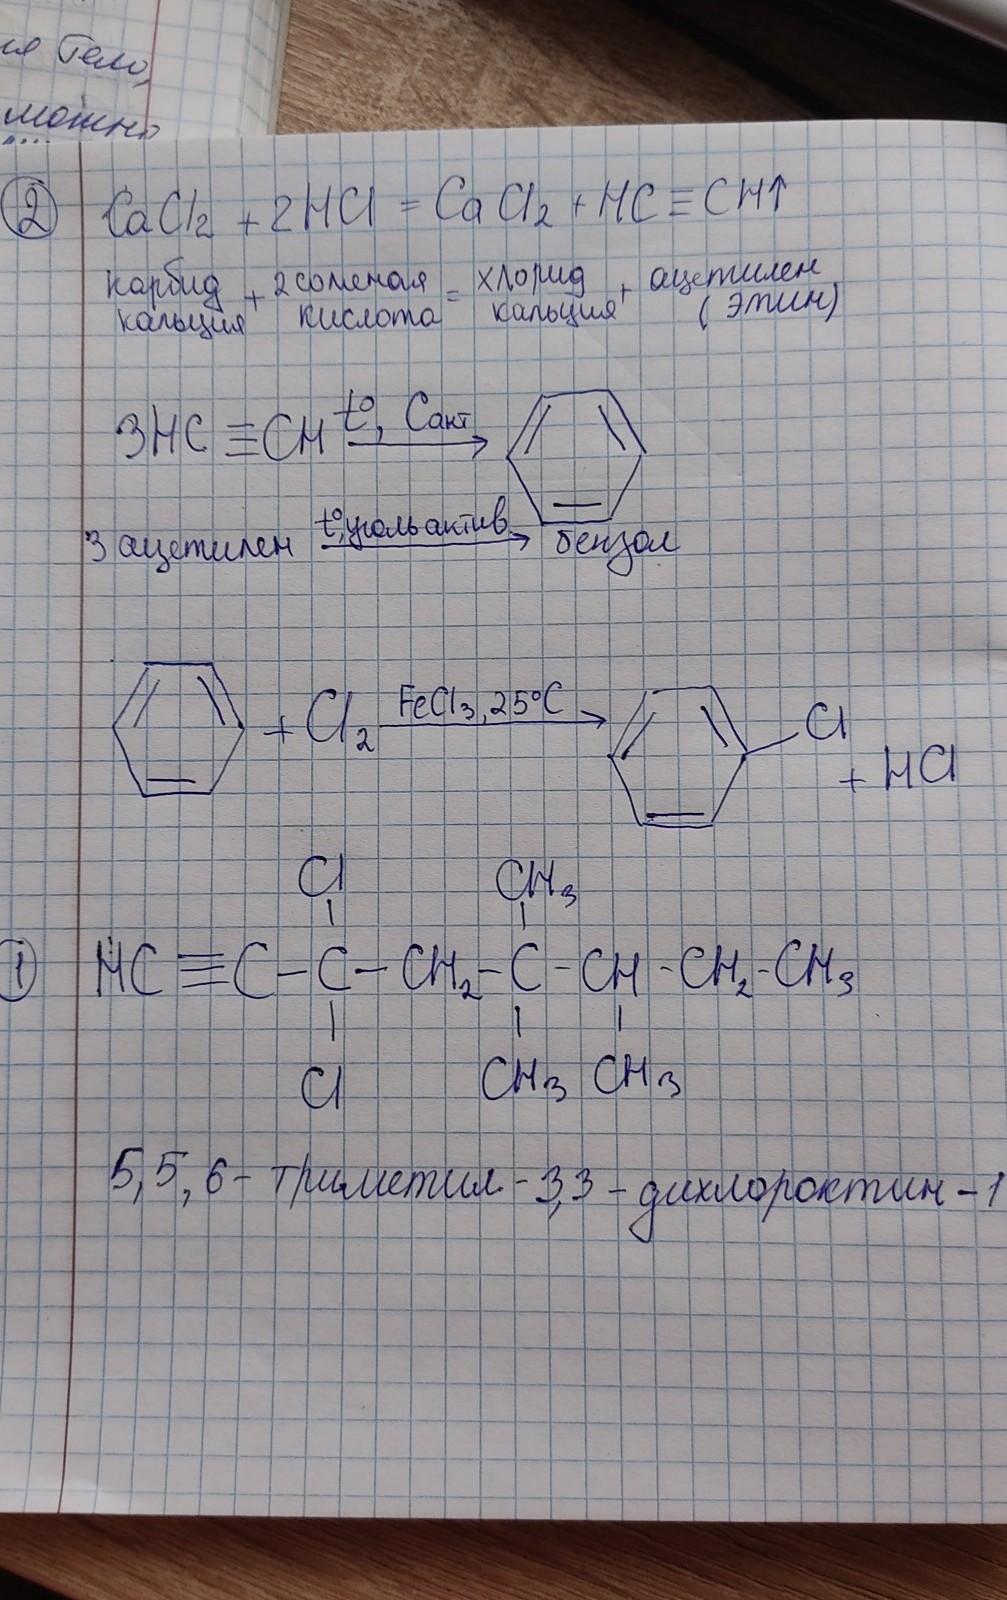 ия Тело,
можно
② CaCl₂ + 2HCl = CaCl₂ + HC≡CH↑
карбид кальция + 2 соленая кислота = хлорид кальция + ацетилен (этин)
3HC≡CH t°, Cакт
3 ацетилен t°, уголь актив. бензол
+ Cl₂ FeCl₃, 25°C Cl + HCl
Cl CH₃
① HC≡C-C-CH₂-C-CH-CH₂-CH₃
Cl CH₃ CH₃
5,5,6-триметил-3,3-дихлороктин-1